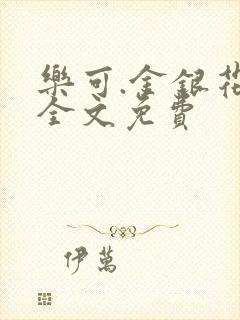 樂可.金銀花
全文免費
伊萬